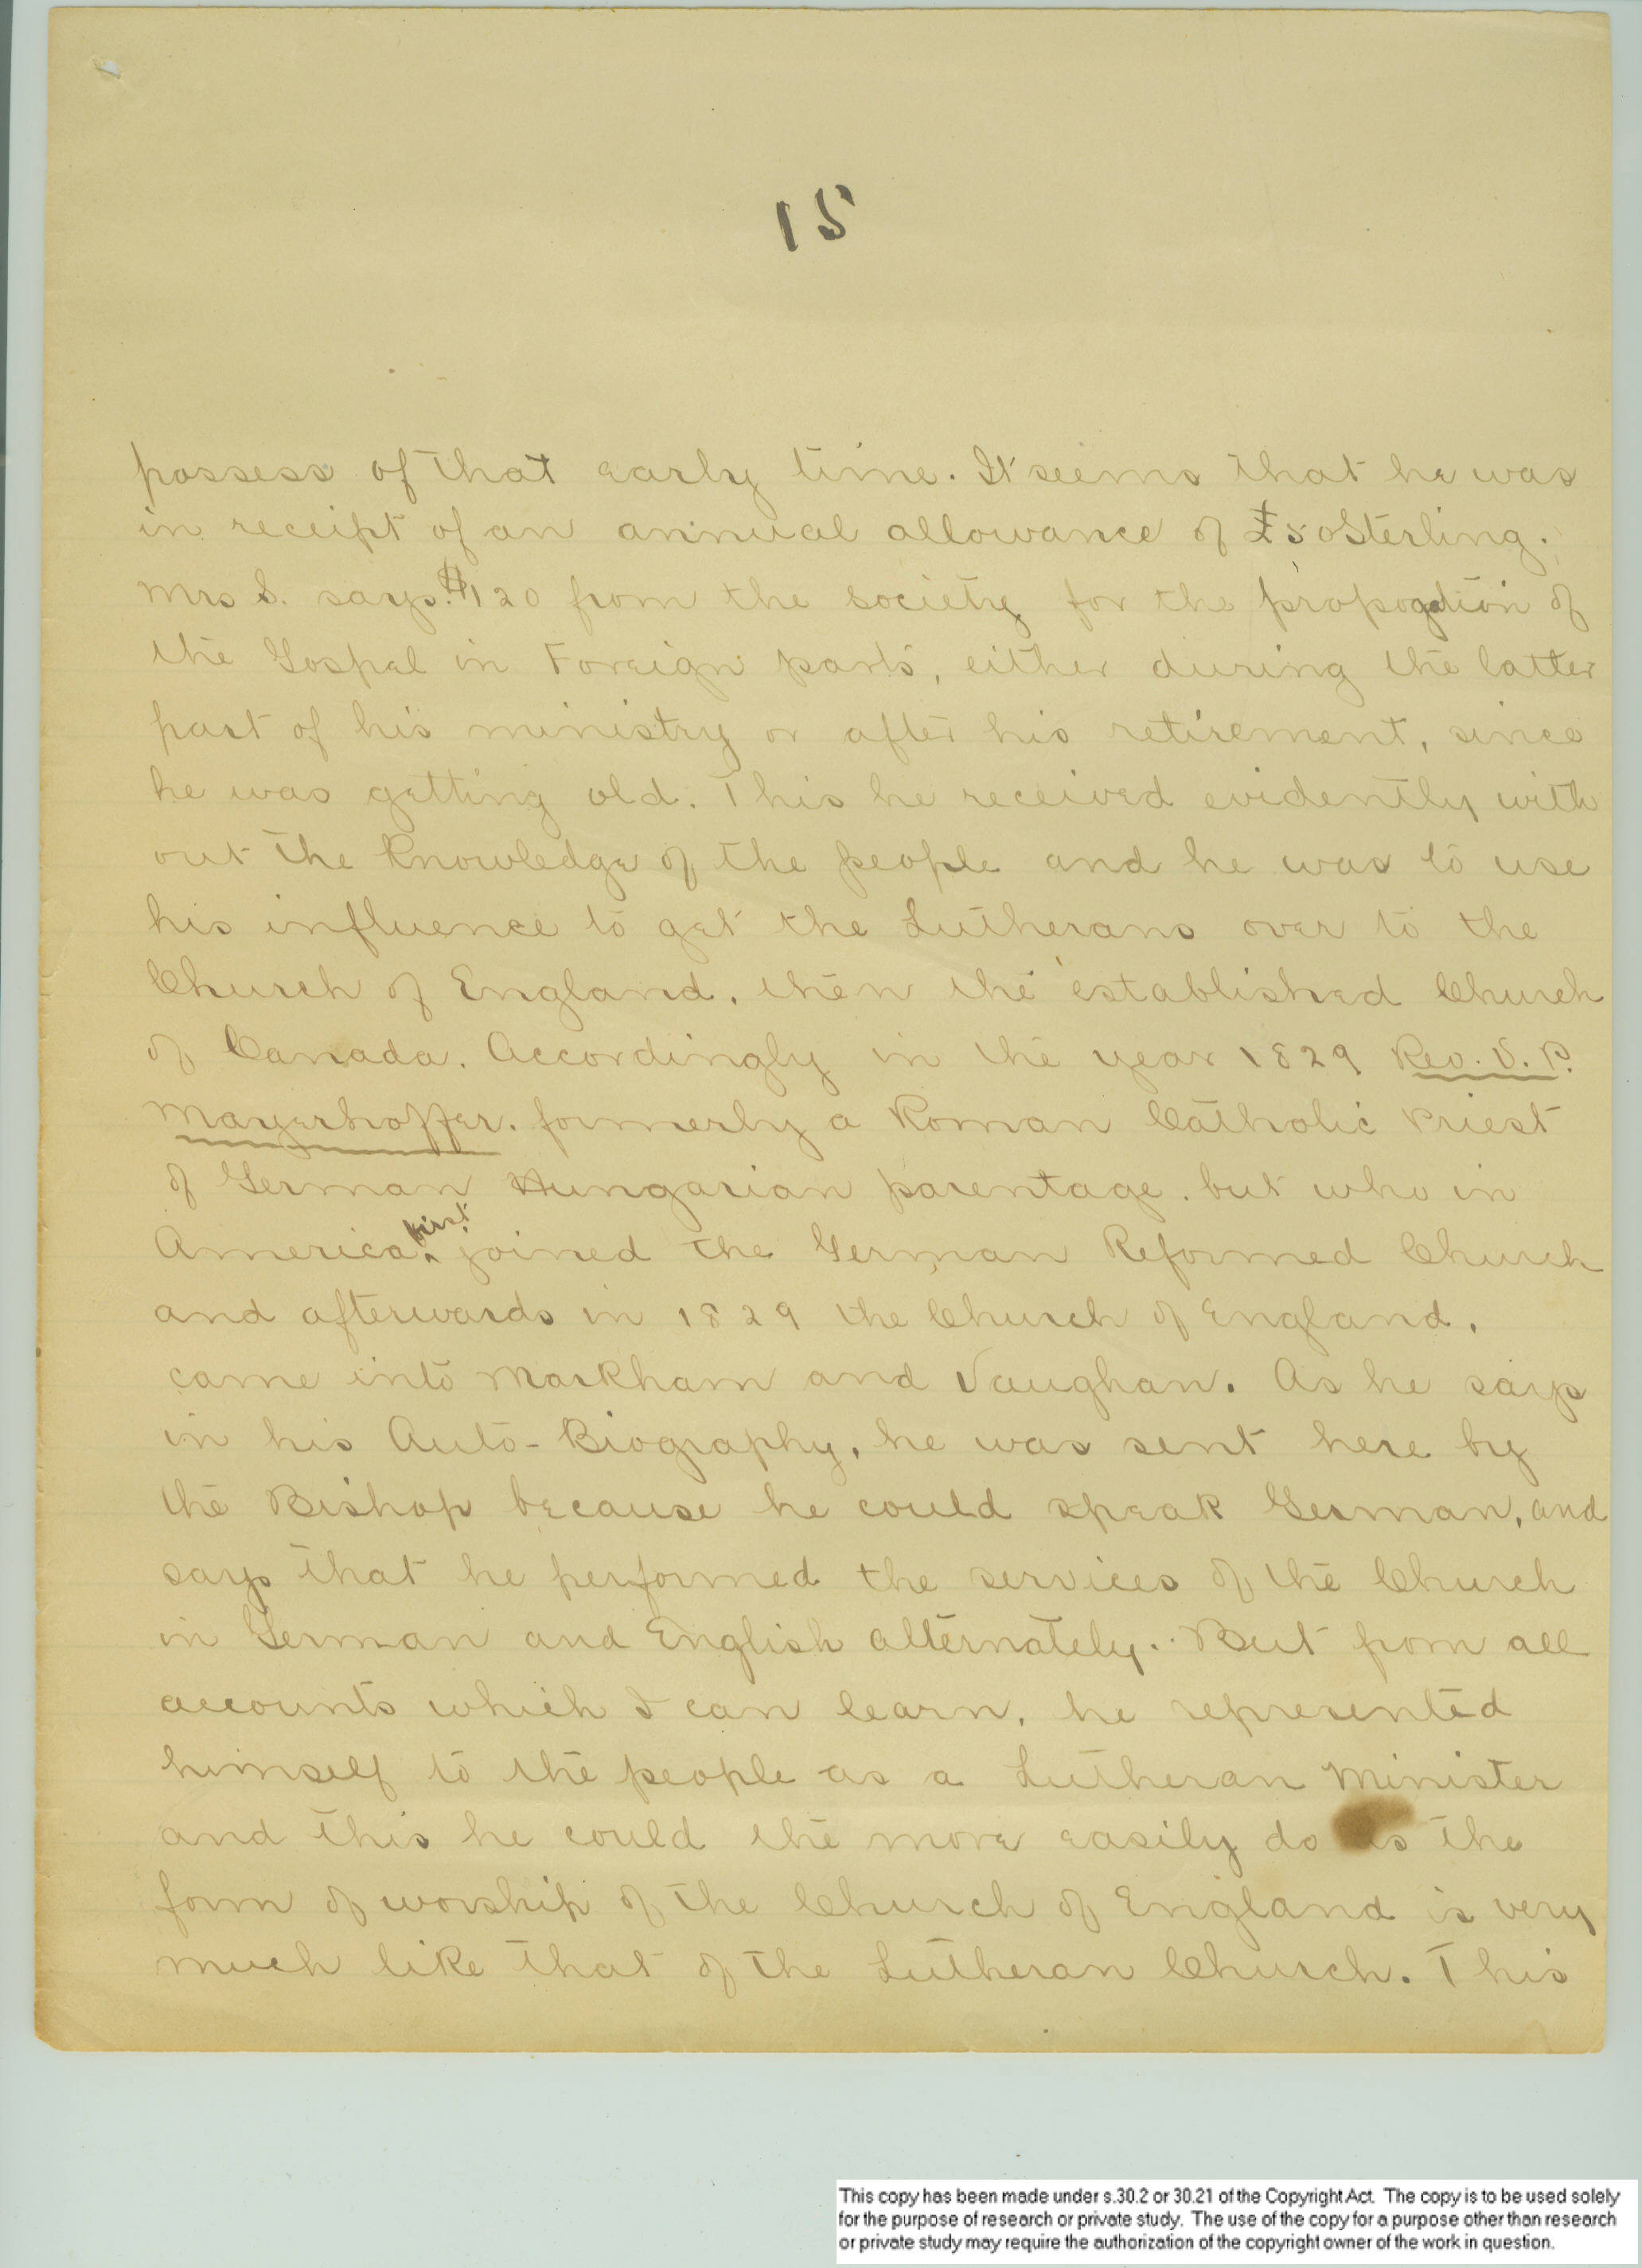 15
possess of that early time. It seems that he was
in receipt of an annual allowance of £50 Sterling.
Mrs S. says $120 from the society for the propogation of
the Gospel in Foreign parts, either during the latter
part of his ministry or after his retirement, since
he was getting old. This he received evidently with
out the Knowledge of the people and he was to use
his influence to get the Lutherans over to the
Church of England, then the established Church
of Canada. Accordingly in the year 1829 Rev. V. P.
Mayerhoffer. formerly a Roman Catholic Priest
of German Hungarian parentage. but who in
America first joined the German Reformed Church
and afterwards in 1829 the Church of England,
came into Markham and Vaughan. As he says
in his Auto-Biography, he was sent here by
the Bishop because he could speak German, and
says that he performed the services of the Church
in German and English alternately. But from all
accounts which I can learn, he represented
himself to the people as a Lutheran Minister
and this he could the more easily do as the
form of worship of the Church of England is very
much like that of the Lutheran Church. This
This copy has been made under s.30.2 or 30.21 of the Copyright Act. The copy is to be used solely
for the purpose of research or private study. The use of the copy for a purpose other than research
or private study may require the authorization of the copyright owner of the work in question.